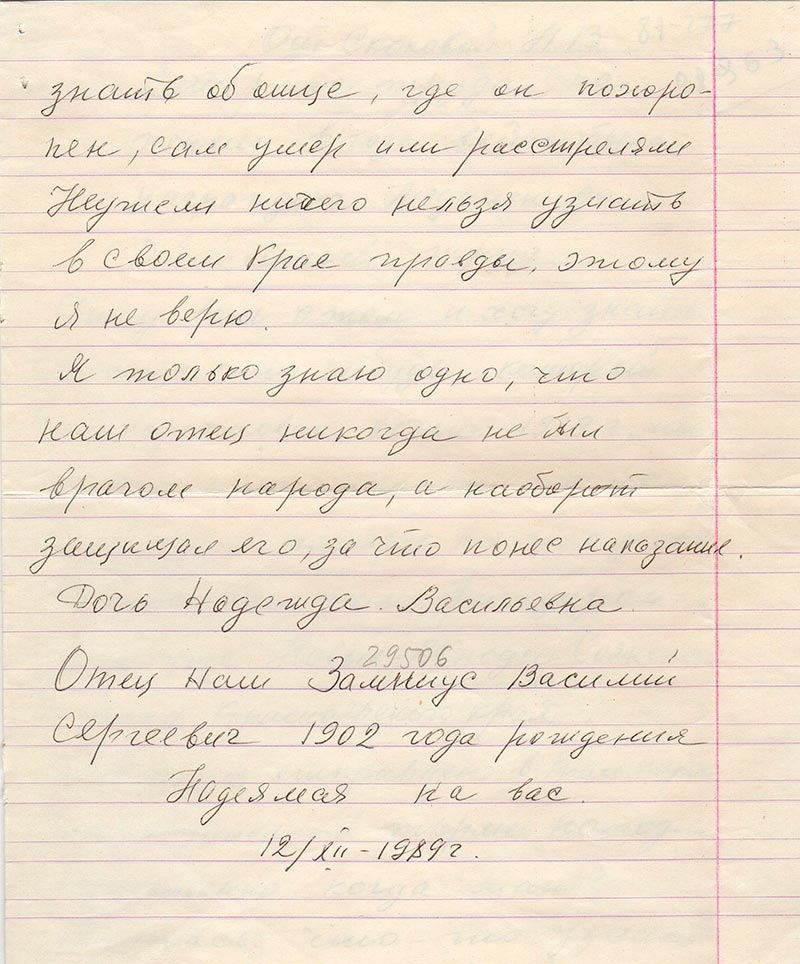 знать об отце, где он похоро-
нен, сам умер или расстреляли
Неужели ничего нельзя узнать
в своем Крае правды, этому
я не верю.
Я только знаю одно, что
наш отец никогда не был
врагом народа, а наоборот
защищал его, за что понес наказание.
Дочь Надежда. Васильевна.
29506
Отец наш Василий
Сергеевич 1902 года рождения
Надеямся на вас.
12/XII-1989г.